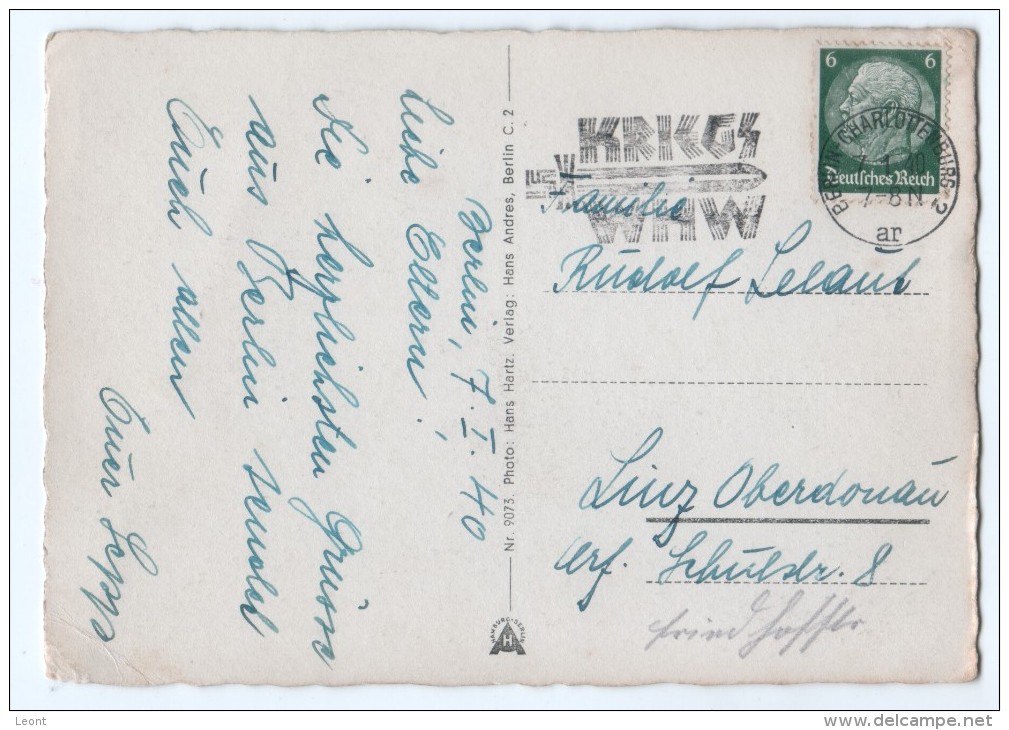 Berlin, 7. I. 40
Liebe Eltern!
Die herzlichsten Grüsse
aus Berlin sendet
Euch allen
Euer Sepp
Nr. 9073. Photo: Hans Hartz. Verlag: Hans Andres, Berlin C. 2
HAMBURG-BERLIN
H
KRIEGS
WHW
6 6
Deutsches Reich
BERLIN-CHARLOTTENBURG 2
7.1.40
7-8 N
ar
Familie
Rudolf
Linz Oberdonau
Schulstr. 8
Leont
delcampe.net